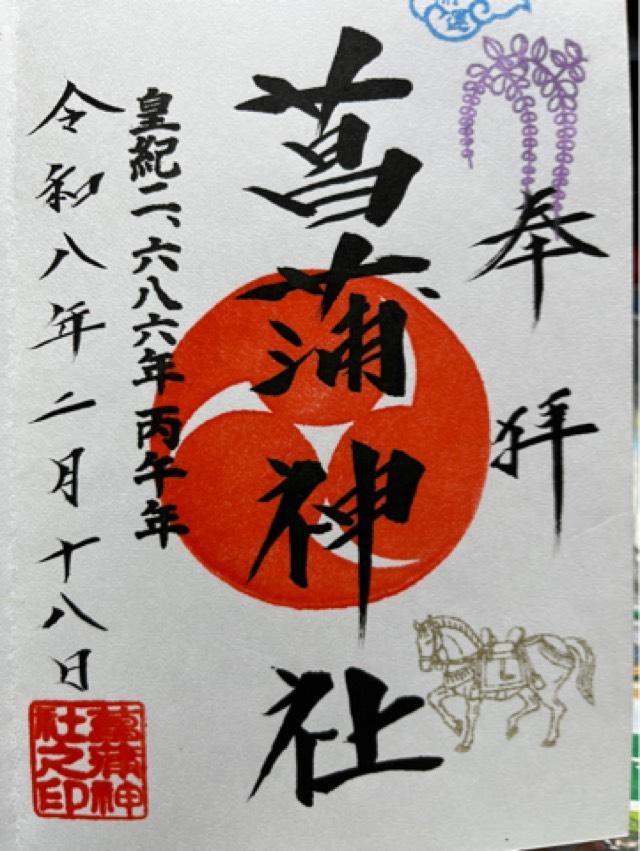 奉拝
菖蒲神社
皇紀二、六八六年丙午年
令和八年二月十八日
菖蒲神
社之印